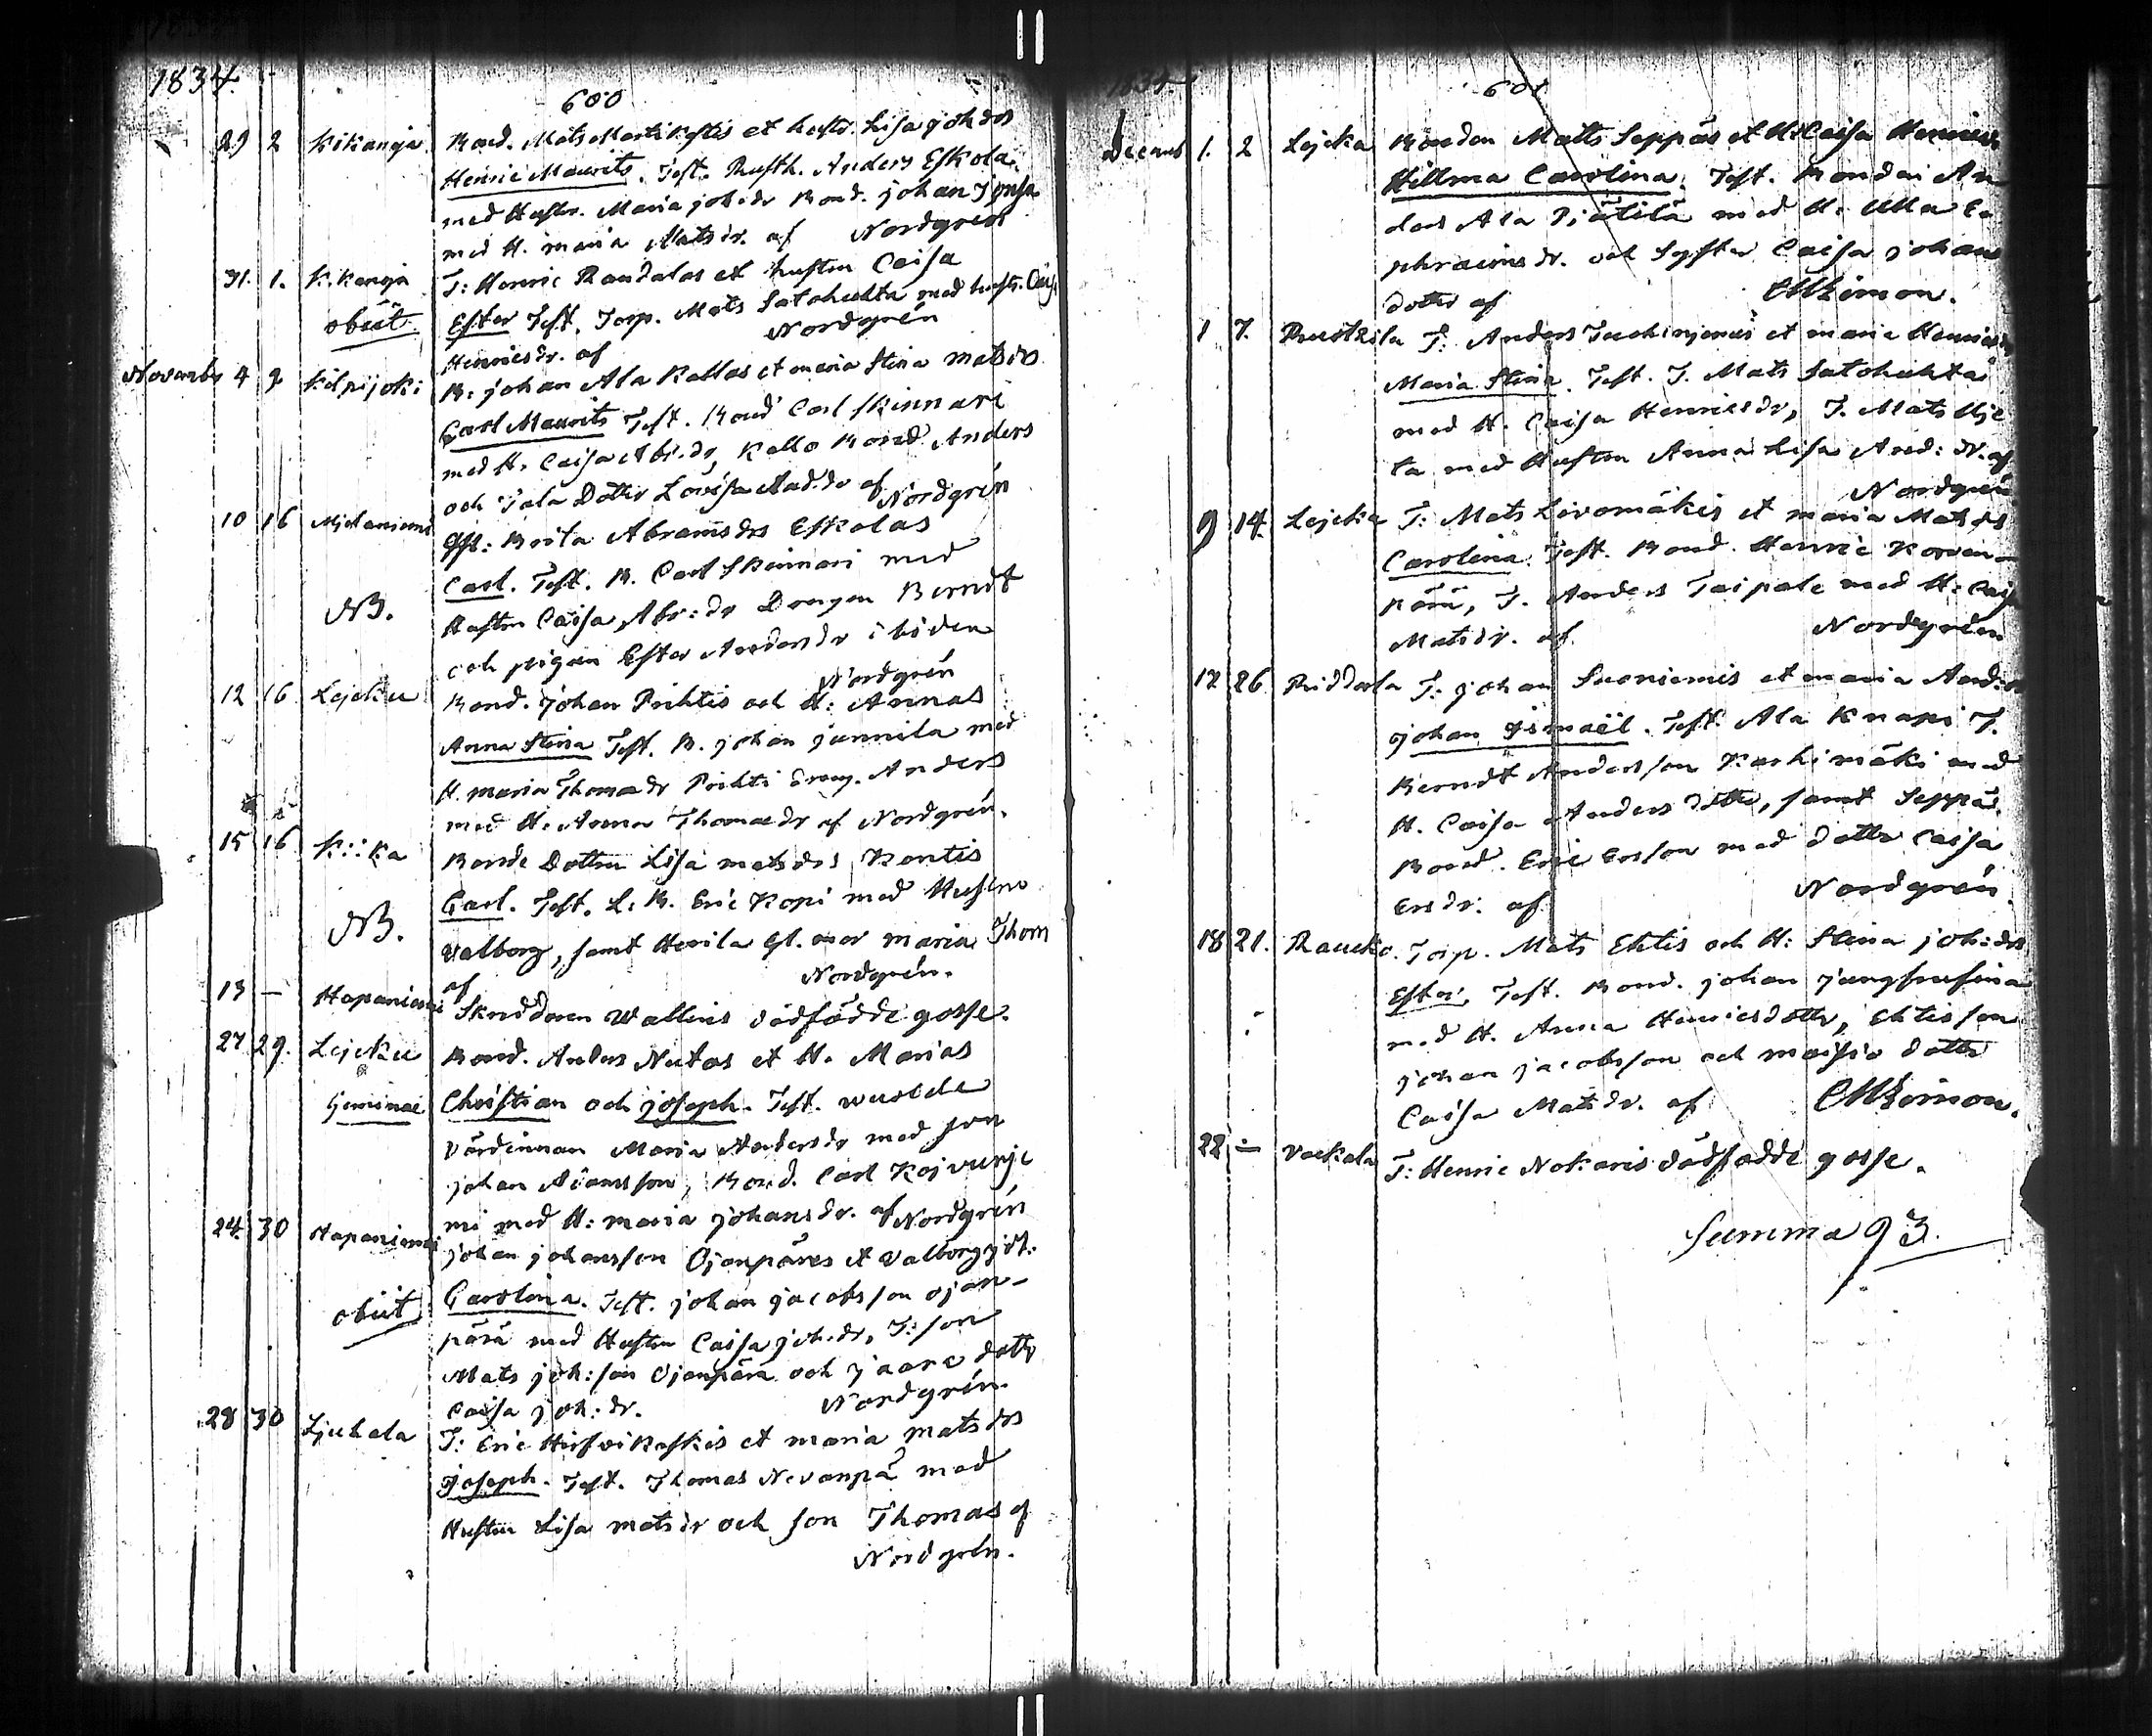 1834.
600
29 2 Kikanoja Bond. Mats Martikastis et hustr. Lisa joh drs
Henric Maurits. Test. Rusth. Anders Eskola
med Hustr. Maria joh:dr Bond. johan
med H. maria Matsdr. af Nordgren
31. 1. Kikanoja T: Henric Randalas et hustrn Caisa
obiit Ester Test. Torp. Mats Satohuhta med hustr. Caj.
Henricsdr. af Nordgrén
Novemb 4 9 Kilpijoki B: johan Ala Kallas et maria Stina matsdrs
Carl Maurits Test. Bond Carl Skinnari
med H. Caisa Abr.dr, Kallo Bond Anders
och Tala Dotter Lovisa Aad.dr af Nordgrén
10 16 Mjelaniemi Gft: Brita Abramsdrs Eskolas
Carl. Test. B. Carl Skinnari med
NB. Hustrn Caisa Abr:dr Drengen Berndt
och pigan Ester Andersdr
Nordgrén
12 16 Lejcku Bond. johan Prihtis och H: Annas
Anna Stina Test. B. johan junnila med
H. maria Thomædr Prihti dreng. Anders
med H. Anna Thomædr af Nordgrén.
15 16 Bonde Dottern Lisa matsdrs Kentis
Carl. Test. L. B. Eric Kopi med Hustru
NB. Valborg, samt Herila Gl. mor maria Thom
af Nordgrén.
13 — Hapaniemi Skreddaren Wallins dödfödde gosse.
27 29. Lejcku Bond. Anders Nutas et H. Marias
Geminai Christian och joseph. Test.
Värdinnan Maria Andersdr med son
johan Adamsson, Bond. Carl Kojvunje
mi med H: maria johansdr. af Nordgrén
24. 30 Hapaniemi johan johansson Ojanpäres et Valborg
obiit Carolina. Test. johan jacobsson ojan-
pärä med Hustrn Caisa joh.dr, T:son
Mats joh:son Ojanpära och jaara dottr
Caisa joh:dr. Nordgrén.
28 30 Ljuhala T: Eric Hirsvikoskis et maria matsdrs
joseph. Test. Thomas Nevanpä med
Hustrn Lisa matsdr och son Thomas af
Nordgrén.
1834
601
Decemb 1. 2 Lejcka Bonden Matts Seppäs et H: Caisa Henricsdr
Hillma Carolina. Test. Bonden An
ders Ala Piätilä med H: Ulla E
phraimsdr. och Syster Caisa johans
dotter af
1 7. Rustkila T: Anders et maria Henricsdr
Maria Stina. Test. T. Mats Satohuhta
med H. Caisa Henricsdr, T. Mats Uje
la med Hustrn Anna Lisa And:dr. af
Nordgrén
9 14. Lejcka T: Mats Livomäkis et maria Matsdrs
Carolina. Test. Bond. Henric Korven-
pärä, T. Anders Taipale med H: Caisa
Matsdr. af Nordgrén
12 26 Riddarla T: johan Suoniemis et maria And:dr
johan jsmaël. Test. Ala Knapi T.
Berndt Andersson Karhimäki med
H. Caisa Anders dotter, samt Seppäs
Bond. Eric Ersson med dotter Caisa
Ersdr. af Nordgrén.
18 21. Raucko. Torp. Mats Ehtis och H: Stina joh:drs
Ester. Test. Bond. johan
med H. Anna Henricsdotter, Ehtis son
johan jacobsson och dotter
Caisa Matsdr. af
22 ÷ Vackala T: Henric Nokaris dödfödde gosse.
Summa 93.